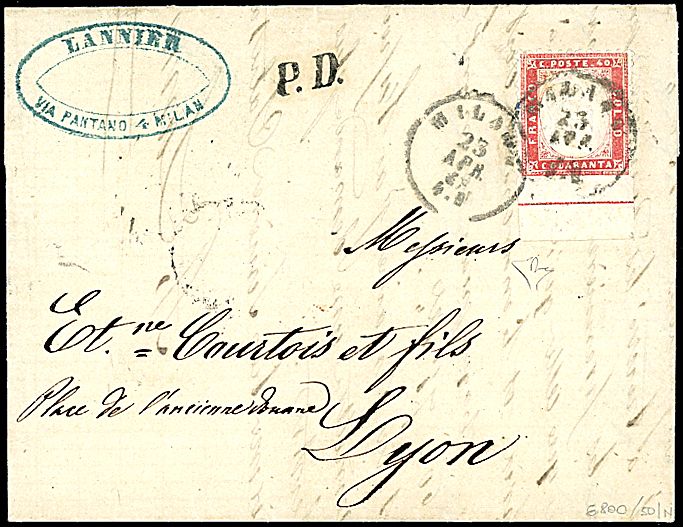 LANNIER
VIA PANTANO 4 MILAN
P.D.
MILANO
23
APR.
C. POSTE. 40
FRANCO
BOLLO
C. QUARANTA
MILANO
23
APR.
Messieurs
Et.ne = Courtois et fils
Place de l'ancienne douane
Lyon